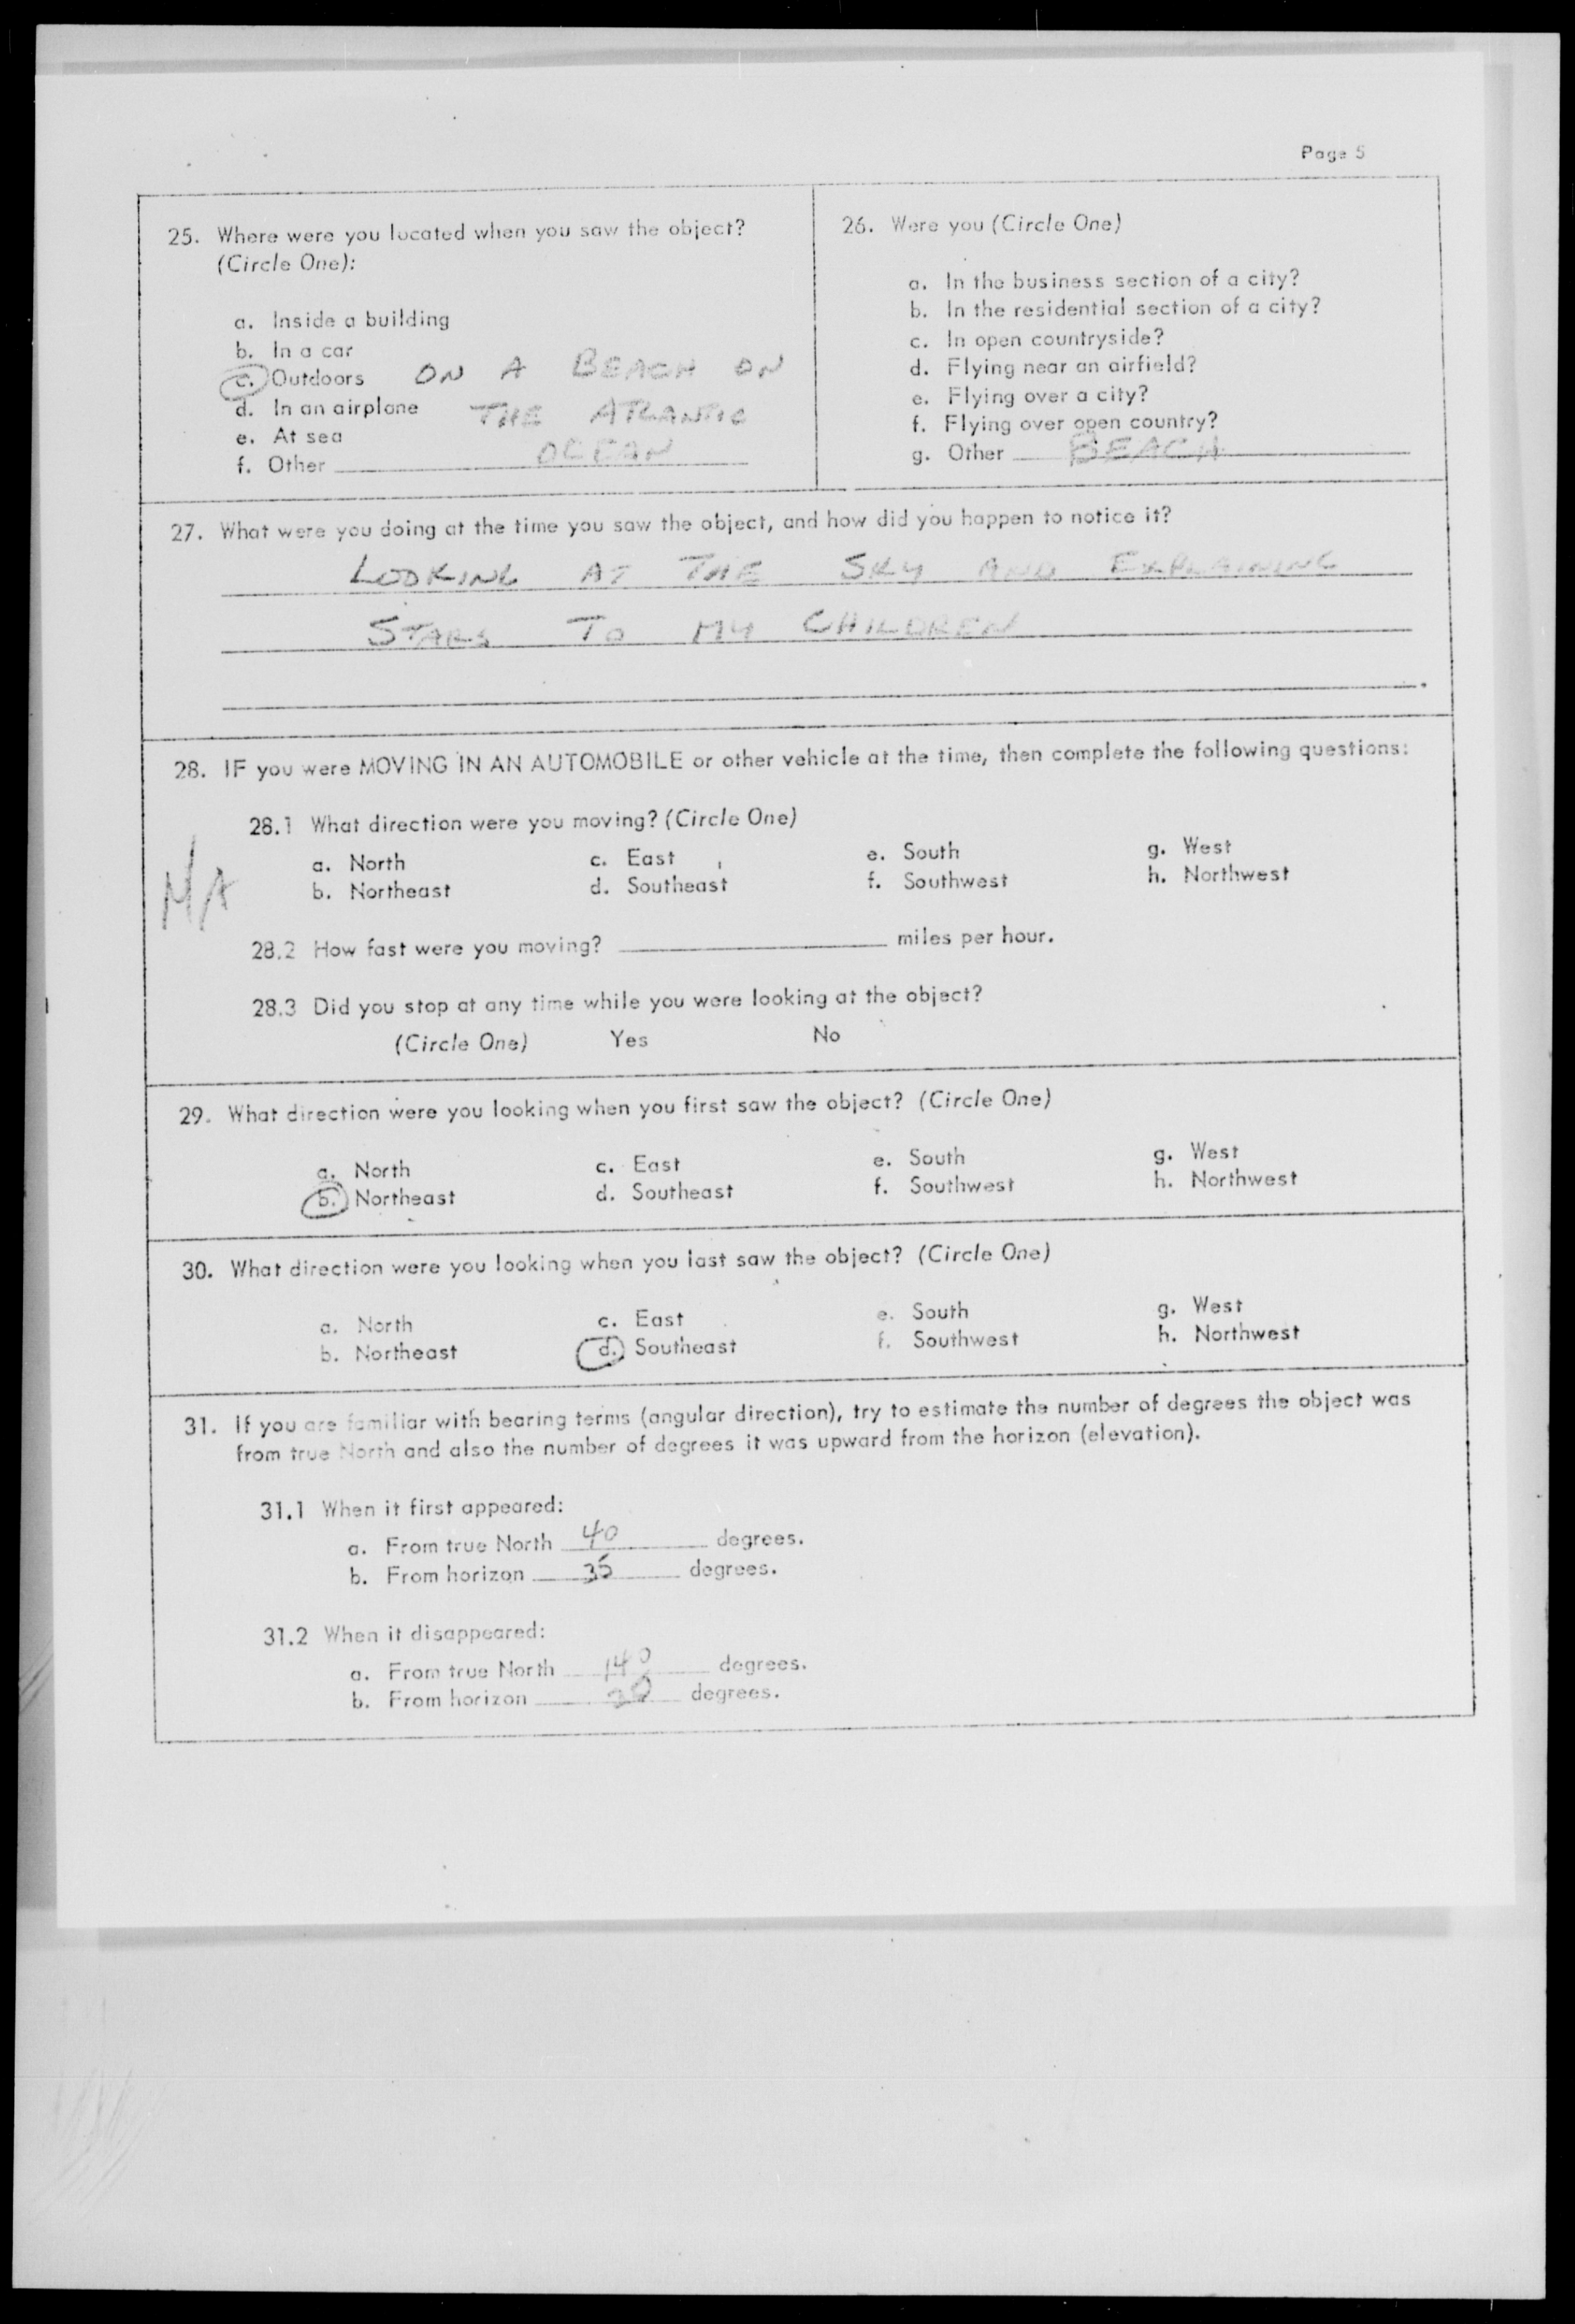 Page 5
25. Where were you located when you saw the object?
(Circle One):
a. Inside a building
b. In a car
c. Outdoors ON A BEACH ON
d. In an airplane THE ATLANTIC
e. At sea
f. Other OCEAN
26. Were you (Circle One)
a. In the business section of a city?
b. In the residential section of a city?
c. In open countryside?
d. Flying near an airfield?
e. Flying over a city?
f. Flying over open country?
g. Other BEACH
27. What were you doing at the time you saw the object, and how did you happen to notice it?
LOOKING AT THE SKY AND EXPLAINING
STARS TO MY CHILDREN
28. IF you were MOVING IN AN AUTOMOBILE or other vehicle at the time, then complete the following questions:
N/A
28.1 What direction were you moving? (Circle One)
a. North c. East e. South g. West
b. Northeast d. Southeast f. Southwest h. Northwest
28.2 How fast were you moving? miles per hour.
28.3 Did you stop at any time while you were looking at the object?
(Circle One) Yes No
29. What direction were you looking when you first saw the object? (Circle One)
a. North c. East e. South g. West
b. Northeast d. Southeast f. Southwest h. Northwest
30. What direction were you looking when you last saw the object? (Circle One)
a. North c. East e. South g. West
b. Northeast d. Southeast f. Southwest h. Northwest
31. If you are familiar with bearing terms (angular direction), try to estimate the number of degrees the object was
from true North and also the number of degrees it was upward from the horizon (elevation).
31.1 When it first appeared:
a. From true North 40 degrees.
b. From horizon 35 degrees.
31.2 When it disappeared:
a. From true North 140 degrees.
b. From horizon degrees.